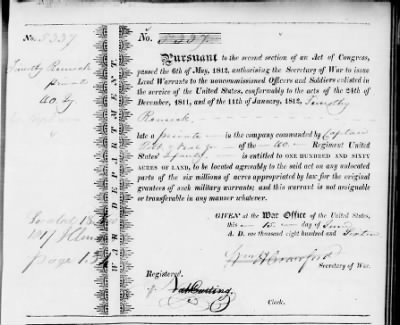 No. 5337
No. 5337
Timothy Remick
private
40. Inf
WAR DEPARTMENT.
Pursuant to the second section of an Act of Congress,
passed the 6th of May, 1812, authorising the Secretary of War to issue
Land Warrants to the noncommissioned Officers and Soldiers enlisted in
the service of the United States, conformably to the acts of the 24th of
December, 1811, and of the 11th of January, 1812, Timothy
Remick,
late a private in the company commanded by Captain
of the 40. Regiment United
States' Infantry is entitled to ONE HUNDRED AND SIXTY
ACRES OF LAND, to be located agreeably to the said act on any unlocated
parts of the six millions of acres appropriated by law for the original
grantees of such military warrants; and this warrant is not assignable
or transferable in any manner whatever.
GIVEN at the War Office of the United States,
this 15. day of
A. D. one thousand eight hundred and
Wm H Crawford
Secretary of War.
Registered.
Clerk.
Located
page